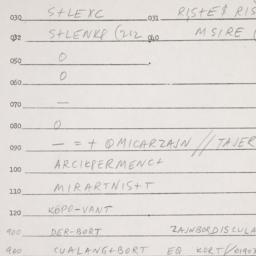 030 STLEXC 031 RISTES RIS
032 STLENKP (212 040 MSIRE (
050 O
060 O
070 —
080 O
090 — = + OMICARZAJN // TAJER
100 ARCIKPERMENCT
110 MIRARTNIST T
120 KEPO-VANT
900 DER-BORT ZAJNBORDISCULA
900 CUALANGTBORT EQ KORT/